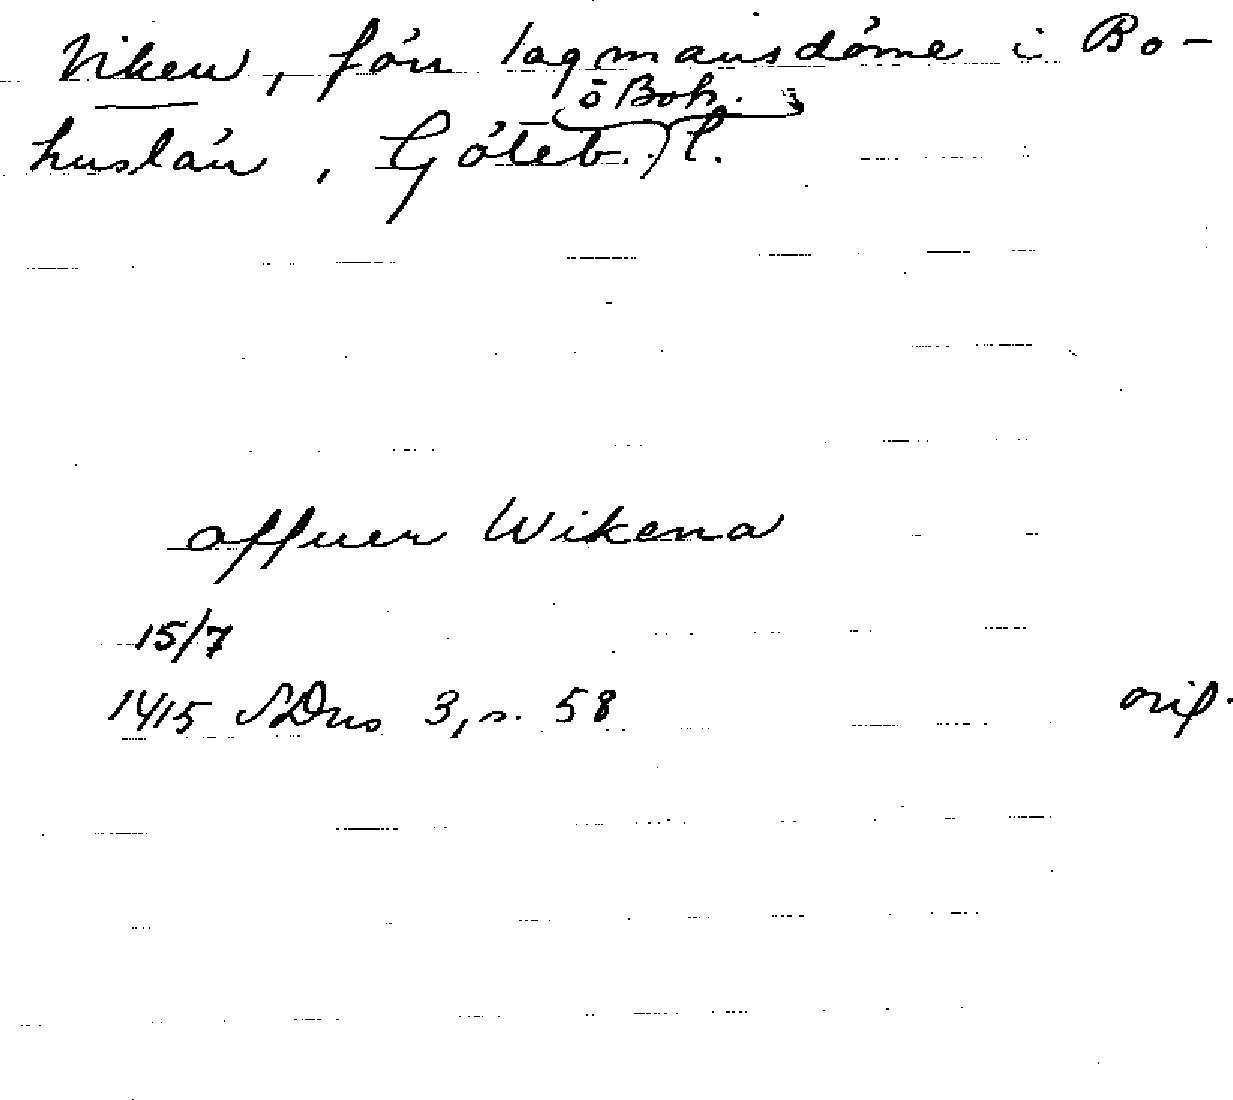 Viken, förr lagmansdöme i Bo-
huslän, Göteb. o Boh. l.
affuer Wikena
15/7
1415 SDns 3, s. 58 orig.